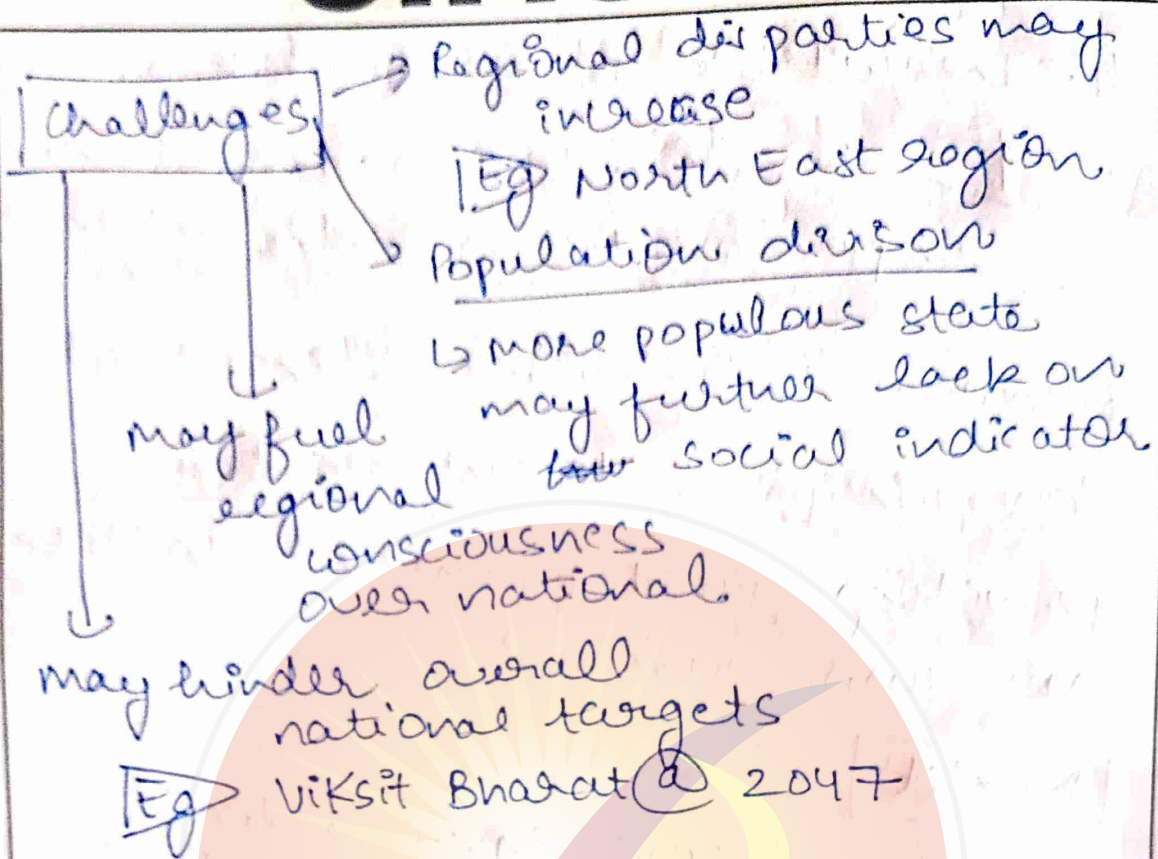 Challenges
Ragional disparties may
increase
Eg North East region
Population divison
↳ more populous state
may further lack on
social indicator
may fuel
regional
consciousness
over national.
may hinder overall
national targets
Eg Viksit Bharat@2047